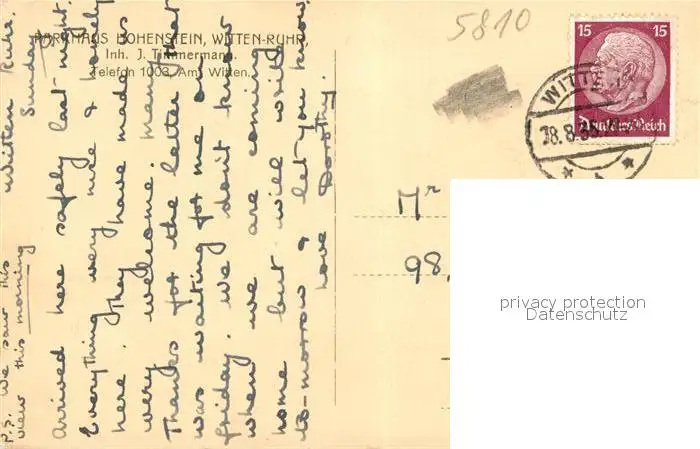 PARKHAUS HOHENSTEIN, WITTEN-RUHR
Inh. J. Timmermann
Telefon 1003, Amt Witten.
5810
15 15
Deutsches Reich
WITTEN
28.8.
Witten Ruhr.
Sunday
Arrived here safely last night.
Everything very nice & lovely
here. They have made us
very welcome. Many
Thanks for the letter that
was waiting for me on
Friday. We don't know
when we are coming
home but will write
to-morrow & let you know.
love Dorothy.
P.S. We saw this
view this morning
Mr
98,
privacy protection
Datenschutz